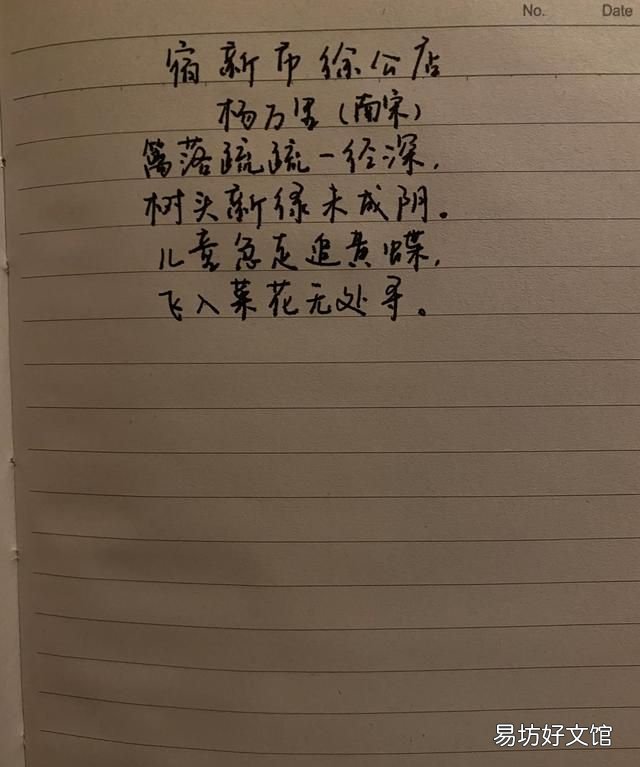 No. Date
宿新市徐公店
杨万里(南宋)
篱落疏疏一径深,
树头新绿未成阴。
儿童急走追黄蝶,
飞入菜花无处寻。
易坊好文馆